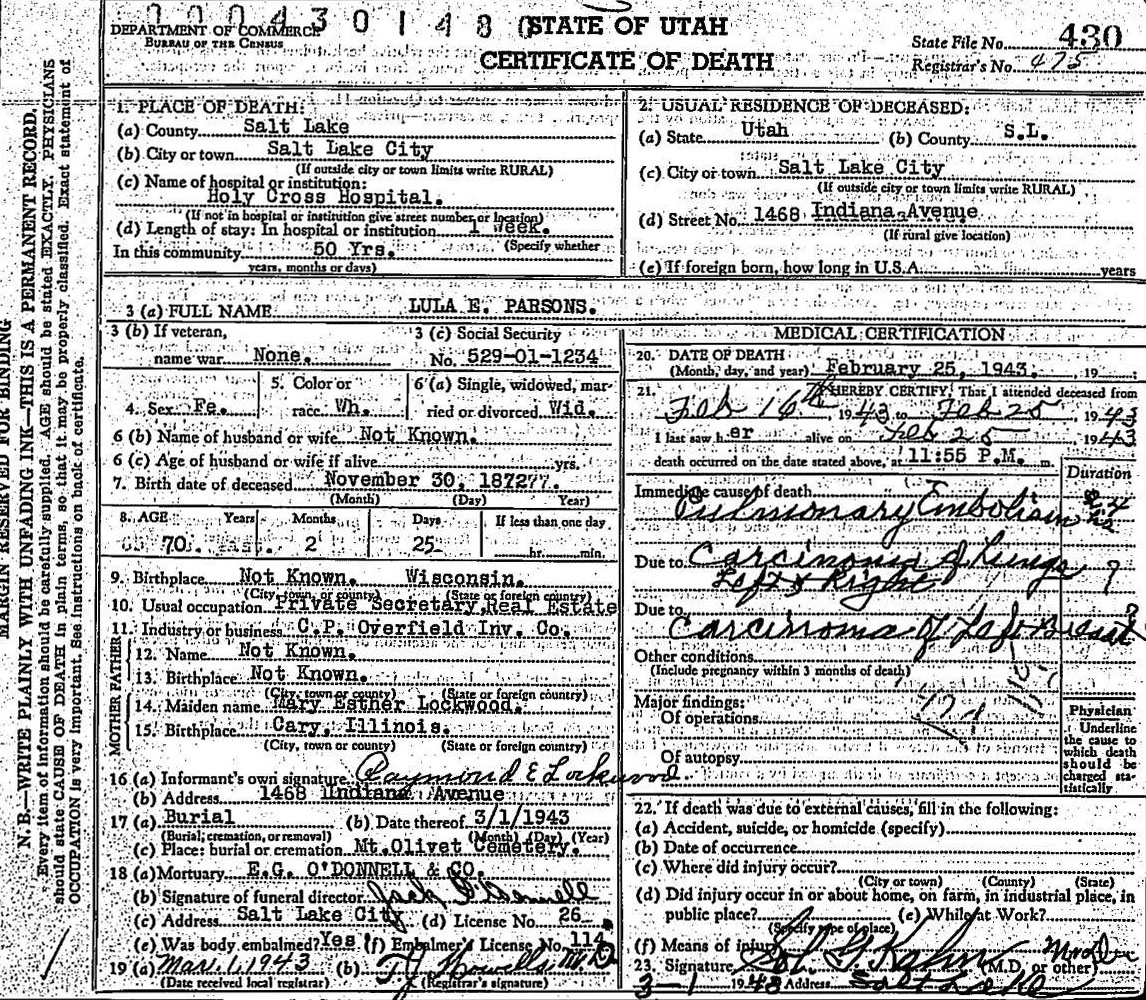 0 0 0 4 3 0 1 4 8 0
DEPARTMENT OF COMMERCE
BUREAU OF THE CENSUS
STATE OF UTAH
CERTIFICATE OF DEATH
State File No. 430
Registrar's No. 475
MARGIN RESERVED FOR BINDING
N. B.—WRITE PLAINLY WITH UNFADING INK—THIS IS A PERMANENT RECORD.
Every item of information should be carefully supplied. AGE should be stated EXACTLY. PHYSICIANS
should state CAUSE OF DEATH in plain terms, so that it may be properly classified. Exact statement of
OCCUPATION is very important. See instructions on back of certificate.
1. PLACE OF DEATH:
(a) County Salt Lake
(b) City or town Salt Lake City
(If outside city or town limits write RURAL)
(c) Name of hospital or institution:
Holy Cross Hospital.
(If not in hospital or institution give street number or location)
(d) Length of stay: In hospital or institution 1 week.
In this community 50 Yrs. (Specify whether
years, months or days)
2. USUAL RESIDENCE OF DECEASED:
(a) State Utah (b) County S.L.
(c) City or town Salt Lake City
(If outside city or town limits write RURAL)
(d) Street No. 1468 Indiana Avenue
(If rural give location)
(e) If foreign born, how long in U.S.A. years
3 (a) FULL NAME LULA E. PARSONS.
3 (b) If veteran,
name war None.
3 (c) Social Security
No. 529-01-1234
4. Sex Fe.
5. Color or
race Wh.
6 (a) Single, widowed, mar-
ried or divorced Wid.
6 (b) Name of husband or wife Not Known.
6 (c) Age of husband or wife if alive yrs.
7. Birth date of deceased November 30, 1872??.
(Month) (Day) Year)
8. AGE Years Months Days If less than one day
70. 2 25 hr. min.
9. Birthplace Not Known. Wisconsin.
(City, town, or county) (State or foreign country)
10. Usual occupation Private Secretary, Real Estate
11. Industry or business C.P. Overfield Inv. Co.
FATHER
12. Name Not Known.
13. Birthplace Not Known.
(City, town or county) (State or foreign country)
MOTHER
14. Maiden name Mary Esther Lockwood.
15. Birthplace Cary, Illinois.
(City, town or county) (State or foreign country)
16 (a) Informant's own signature Raymond E Lockwood
(b) Address 1468 Indiana Avenue
17 (a) Burial (b) Date thereof 3/1/1943
(Burial, cremation, or removal) (Month) (Day) (Year)
(c) Place: burial or cremation Mt. Olivet Cemetery.
18 (a) Mortuary E.G. O'DONNELL & CO.
(b) Signature of funeral director Jack O'Donnell
(c) Address Salt Lake City (d) License No. 26
(e) Was body embalmed? Yes (f) Embalmer's License No. 114
19 (a) Mar. 1, 1943 (b) T J Howells M.D
(Date received local registrar) (Registrar's signature)
MEDICAL CERTIFICATION
20. DATE OF DEATH
(Month, day, and year) February 25, 1943. 19
21. I HEREBY CERTIFY, That I attended deceased from
Feb 16th 1943 to Feb 25 1943
I last saw her alive on Feb 25 1943
death occurred on the date stated above, at 11:55 P.M. m.
Duration
Immediate cause of death
Pulmonary Embolism 24 hrs
Due to Carcinoma of Lungs
Left & Right ?
Due to
Carcinoma of Left Breast ?
Other conditions
(Include pregnancy within 3 months of death)
Major findings:
Of operations
Of autopsy
Physician
Underline
the cause to
which death
should be
charged sta-
tistically
22. If death was due to external causes, fill in the following:
(a) Accident, suicide, or homicide (specify)
(b) Date of occurrence
(c) Where did injury occur?
(City or town) (County) (State)
(d) Did injury occur in or about home, on farm, in industrial place, in
public place? (e) While at Work?
(Specify type of place)
(f) Means of injury
23. Signature Sol. G. Kahn (M.D. or other)
3-1 1943 Address Salt Lake